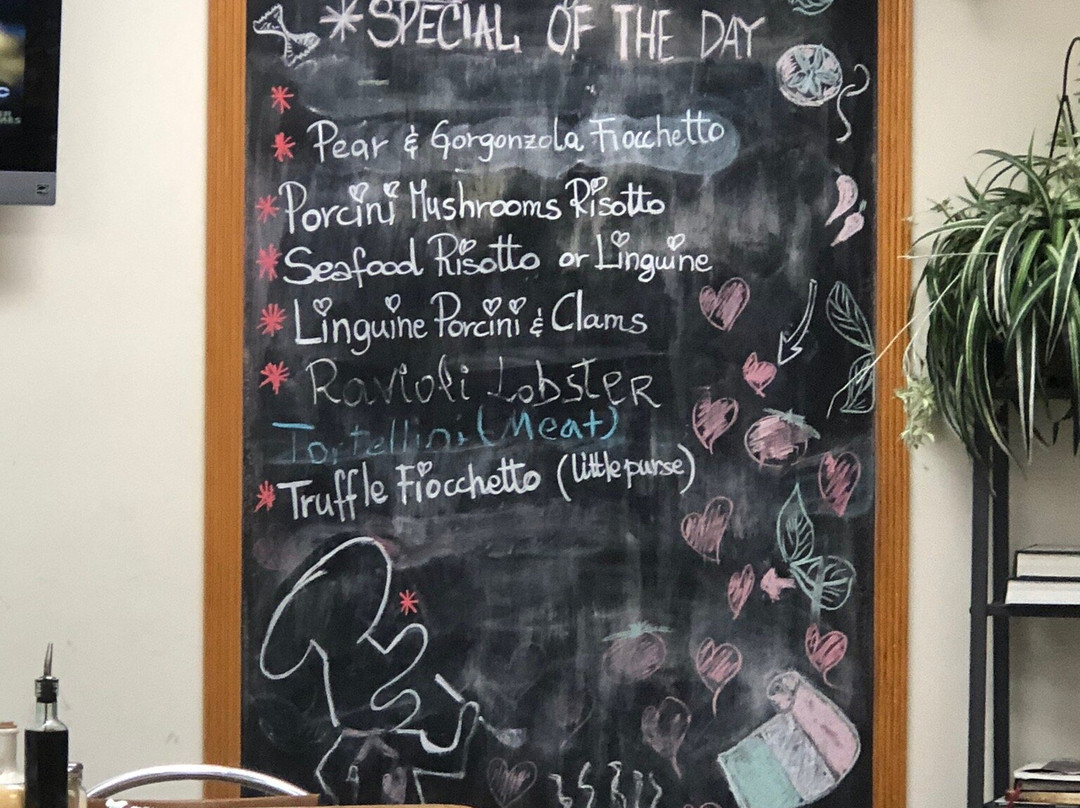 *SPECIAL OF THE DAY
*
* Pear & Gorgonzola Fiocchetto
* Porcini Mushrooms Risotto
* Seafood Risotto or Linguine
* Linguine Porcini & Clams
* Ravioli Lobster
Tortellini (Meat)
* Truffle Fiocchetto (little purse)